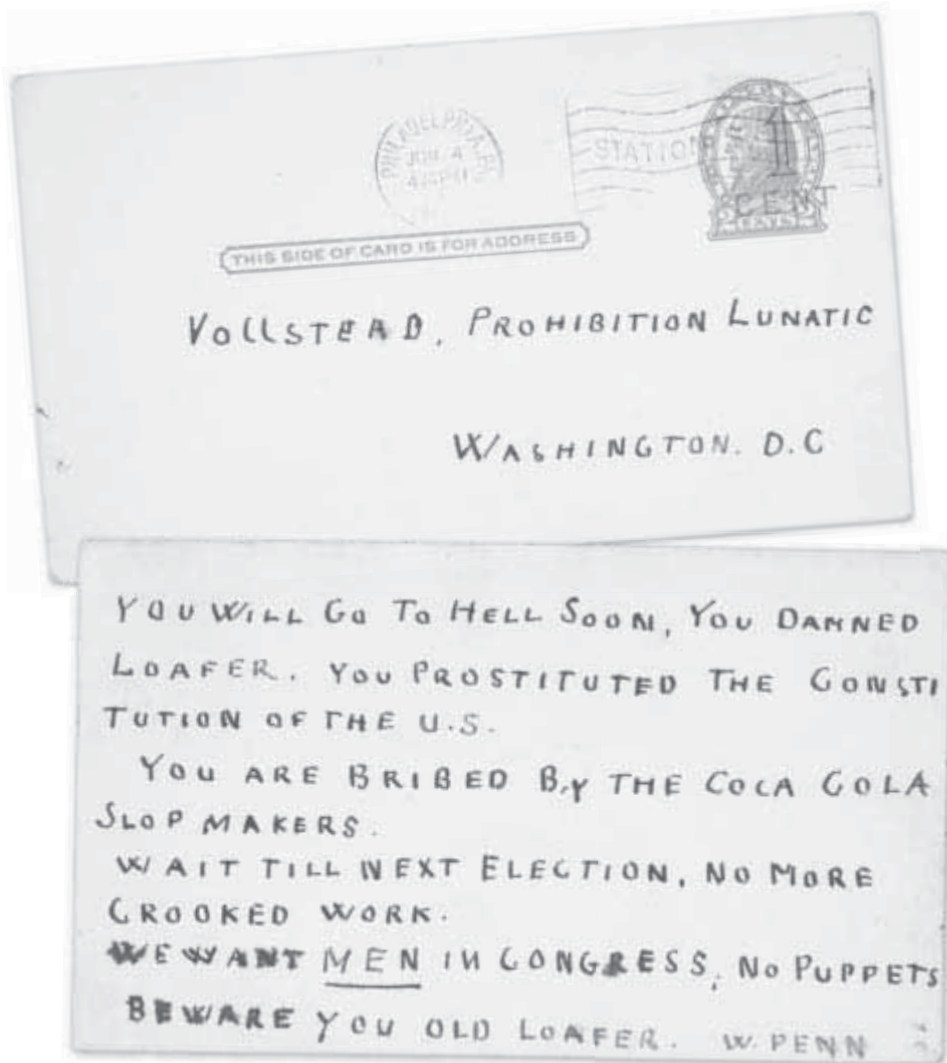 PHILADELPHIA, PA.
JUN 4
4 PM
STATION
1
CENT
THIS SIDE OF CARD IS FOR ADDRESS
VOLLSTEAD, PROHIBITION LUNATIC
WASHINGTON. D.C
YOU WILL GO TO HELL SOON, YOU DAMNED
LOAFER. YOU PROSTITUTED THE CONSTI
TUTION OF THE U.S.
YOU ARE BRIBED BY THE COCA COLA
SLOP MAKERS.
WAIT TILL NEXT ELECTION, NO MORE
CROOKED WORK.
WE WANT MEN IN CONGRESS, NO PUPPETS
BEWARE YOU OLD LOAFER. W. PENN